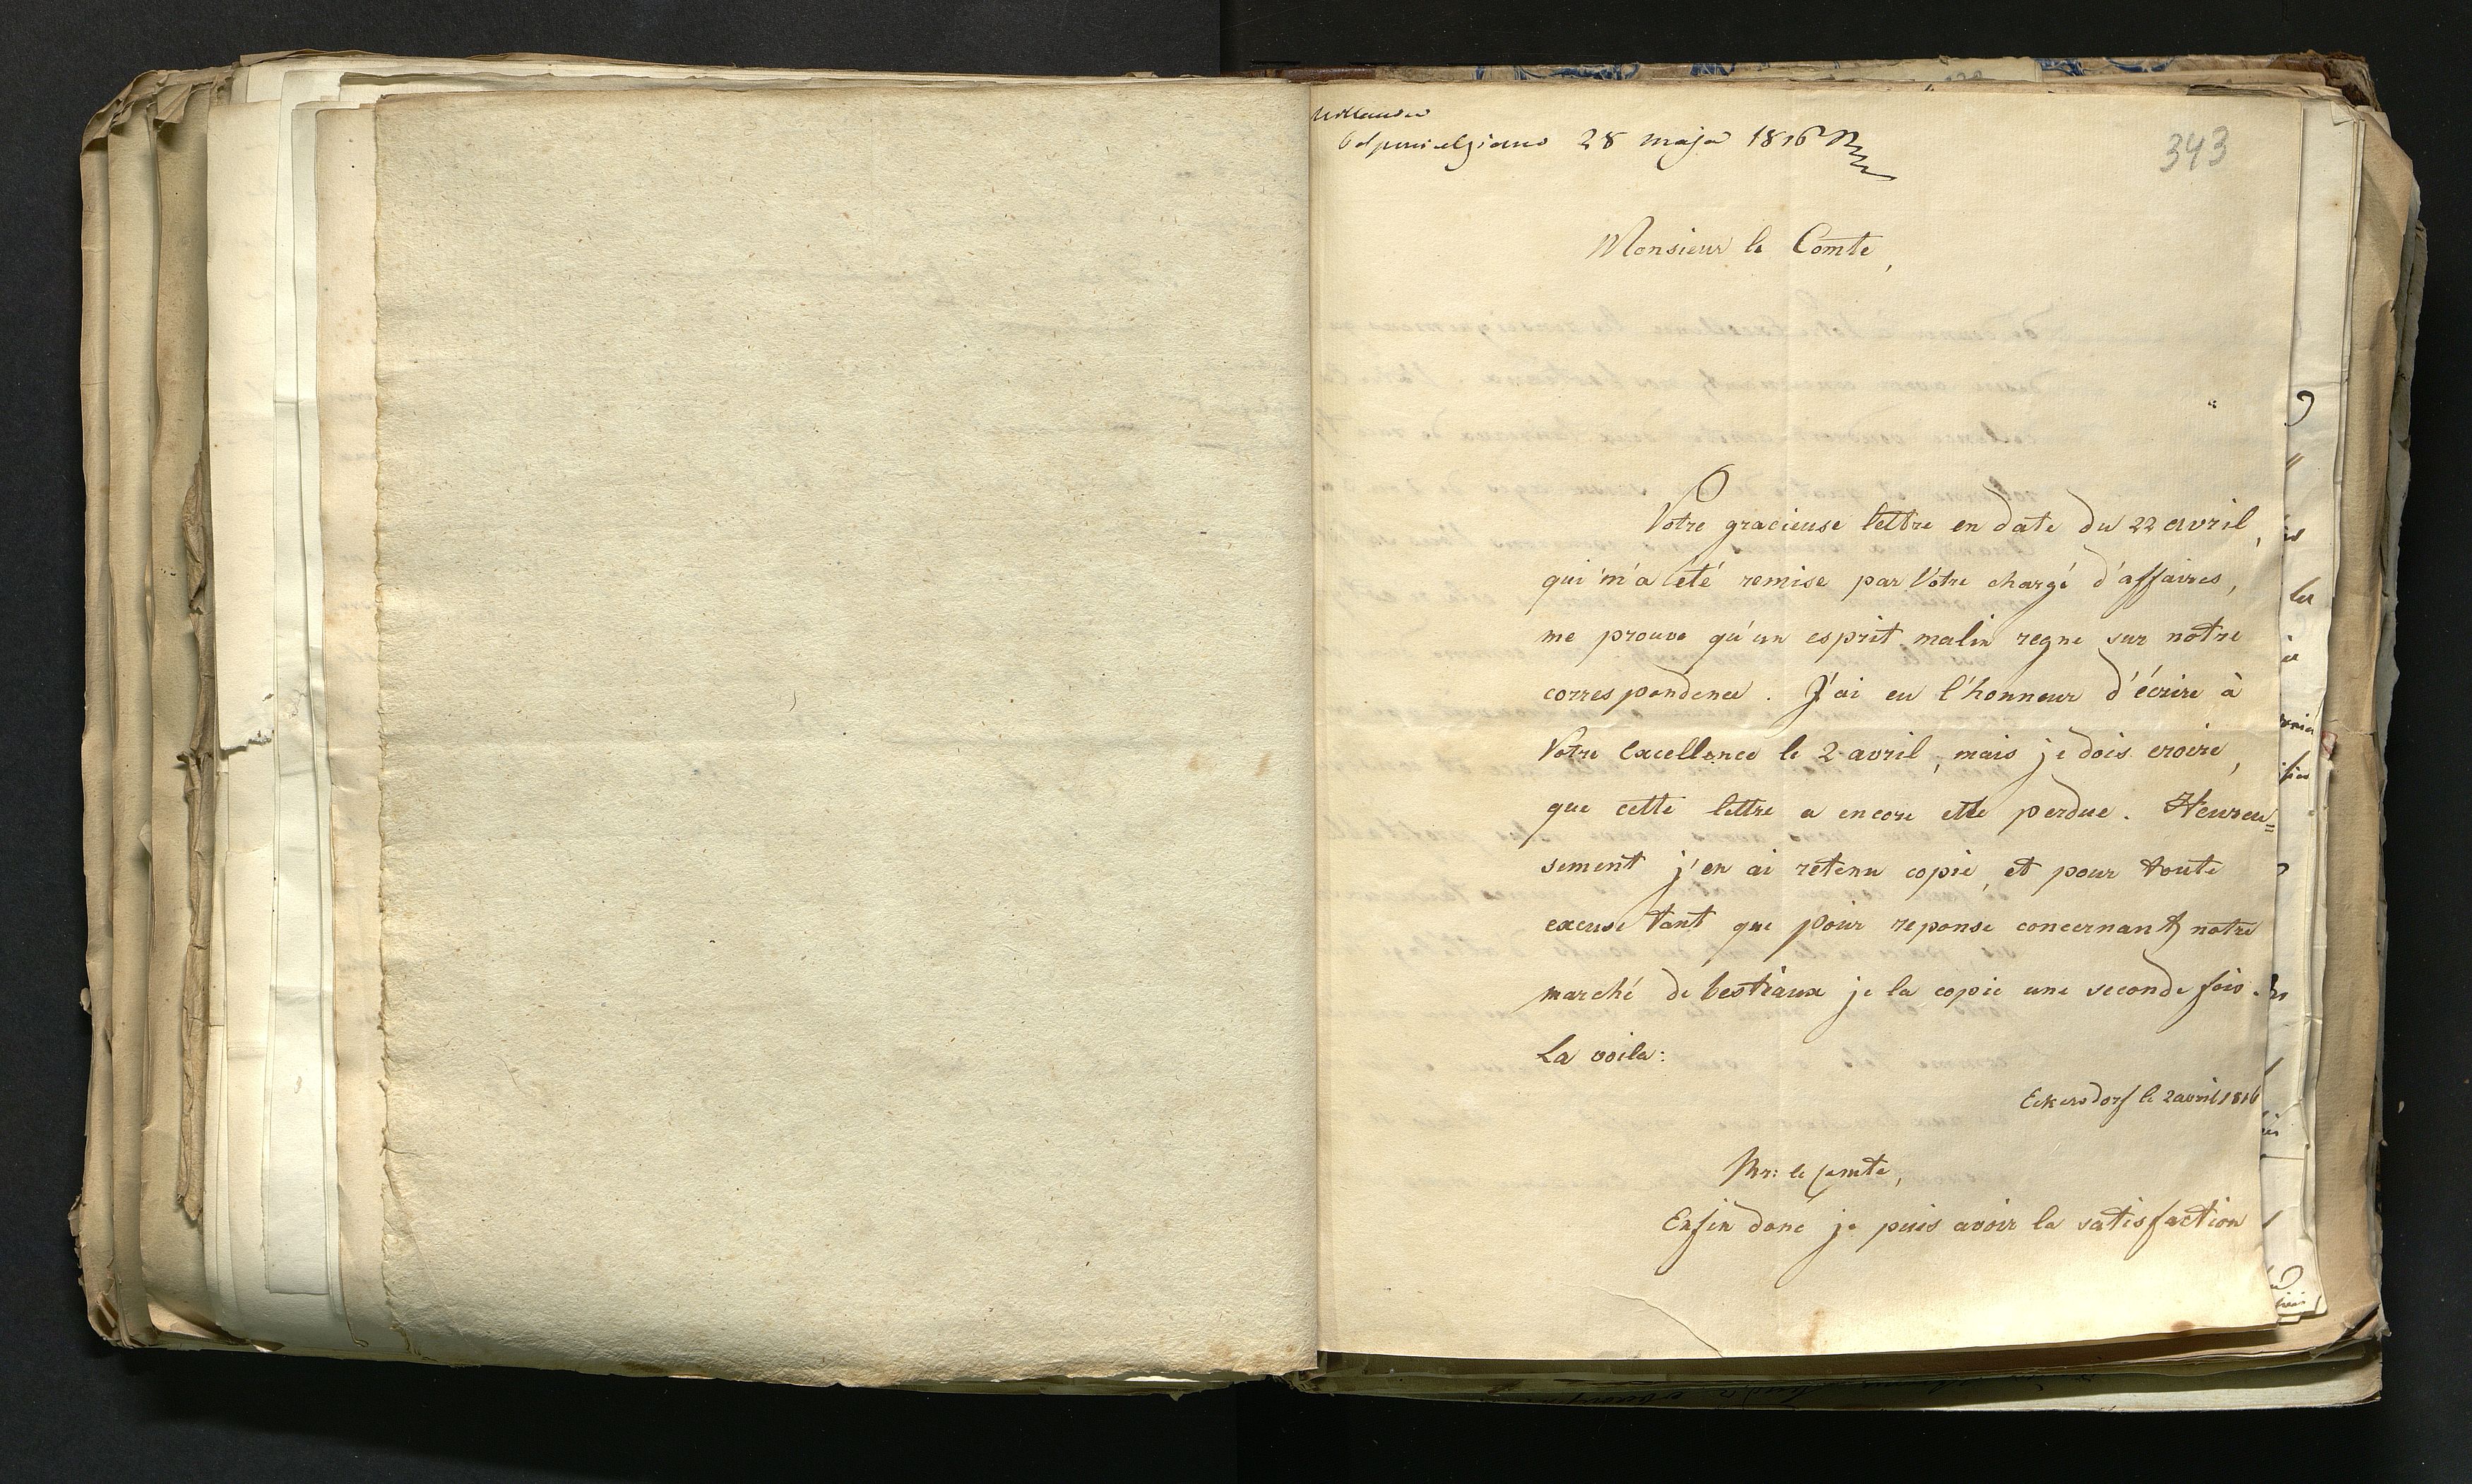 Odpowiedziano 28 maja 1816
343
Monsieur le Comte,
Votre gracieuse lettre en date du 22 avril,
qui m'a été remise par Votre chargé d'affaires,
me prouve qu'un esprit malin regne sur notre
correspondence. J'ai eu l'honneur d'écrire à
Votre Excellence le 2 avril, mais je dois croire,
que cette lettre a encore etté perdue. Heureu=
sement j'en ai retenu copie, et pour toute
excuse tant que pour reponse concernant notre
marché de bestiaux je la copie une seconde fois.
La voila:
Eckersdorf le 2 avril 1816
Mr: le Comte,
Enfin donc je puis avoir la satisfaction